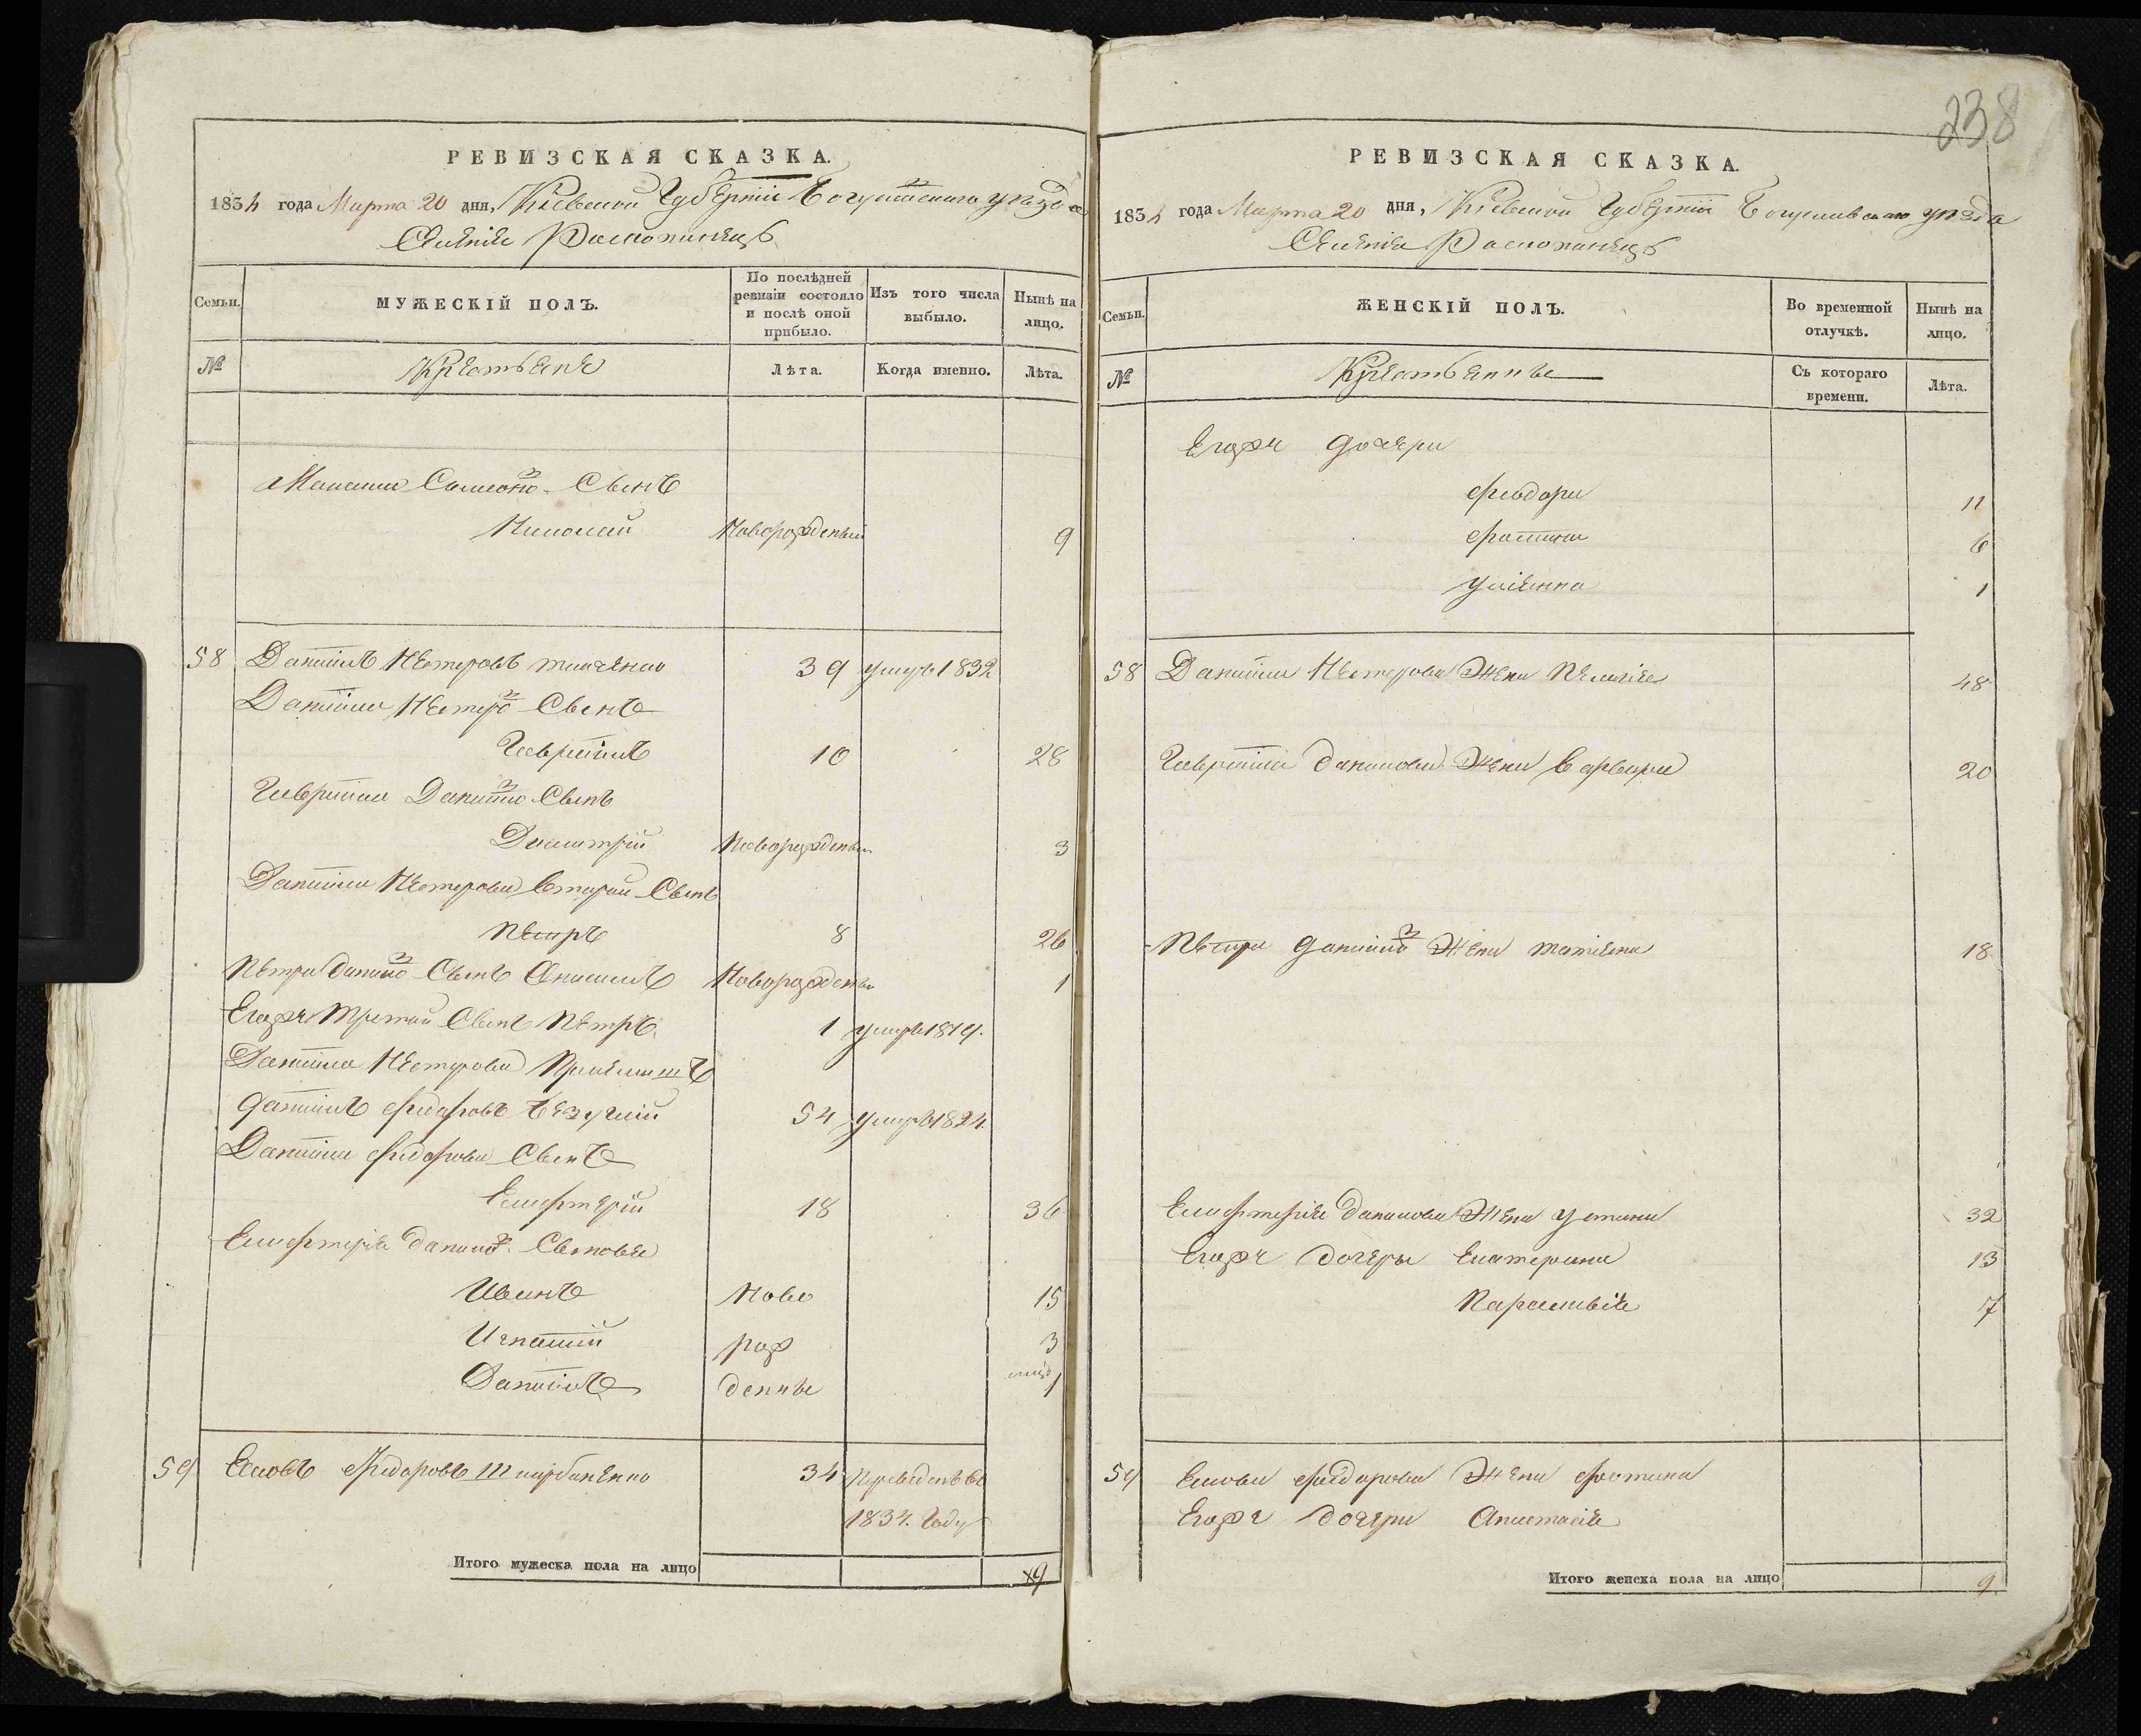 238
РЕВИЗСКАЯ СКАЗКА.
1834 года Марта 20 дня, Кіевской Губерніи Богуславского уезда
Селенія
Семьи.
МУЖЕСКІЙ ПОЛЪ.
По послѣдней ревизіи состояло и послѣ оной прибыло.
Изъ того числа выбыло.
Нынѣ на лицо.
№
Крестьяне
Лѣта.
Когда именно.
Лѣта.
Сынъ
Николай Новорожденый 9
58 Даніилъ Нестеровъ 39 умръ 1832
Даніила Нестеро Сынъ
Гавріилъ 10 28
Гавріила Даніило Сынъ
Дмитрій Новорожденый 3
Даніила Нестерова вторый Сынъ
Петръ 8 26
Петра Данило Сынъ Анисимъ Новорожденый 1
Егожъ третій Сынъ Петръ 1 умръ 1819.
Даніила Нестерова
Даніилъ Федоровъ 54 умръ 1824.
Даніила Федорова Сынъ
Елефтерій 18 36
Елефтерія Данило Сыновья
Иванъ Ново 15
Игнатій рож 3
Даніилъ денные 1
59 Яковъ Федоровъ 34 Переведенъ въ
1834. Году
Итого мужеска пола на лицо 9
РЕВИЗСКАЯ СКАЗКА.
1834 года Марта 20 дня, Кіевской Губерніи Богуславского уезда
Селенія
Семьи.
ЖЕНСКІЙ ПОЛЪ.
Во временной отлучкѣ.
Нынѣ на лицо.
№
Крестьянки
Съ котораго времени.
Лѣта.
Егожъ дочери
Феодора 11
Фотина 6
Уліянна 1
58 Даніила Нестерова Жена Пелагія 48
Гавріила Данилова Жена Варвара 20
Петра Даніило Жена Татіяна 18
Елефтерія Данилова Жена Устина 32
Егожъ дочери Екатерина 13
Параскевія 7
59 Якова Федорова Жена Фотина
Егожъ дочери Анастасія
Итого женска пола на лицо 9.